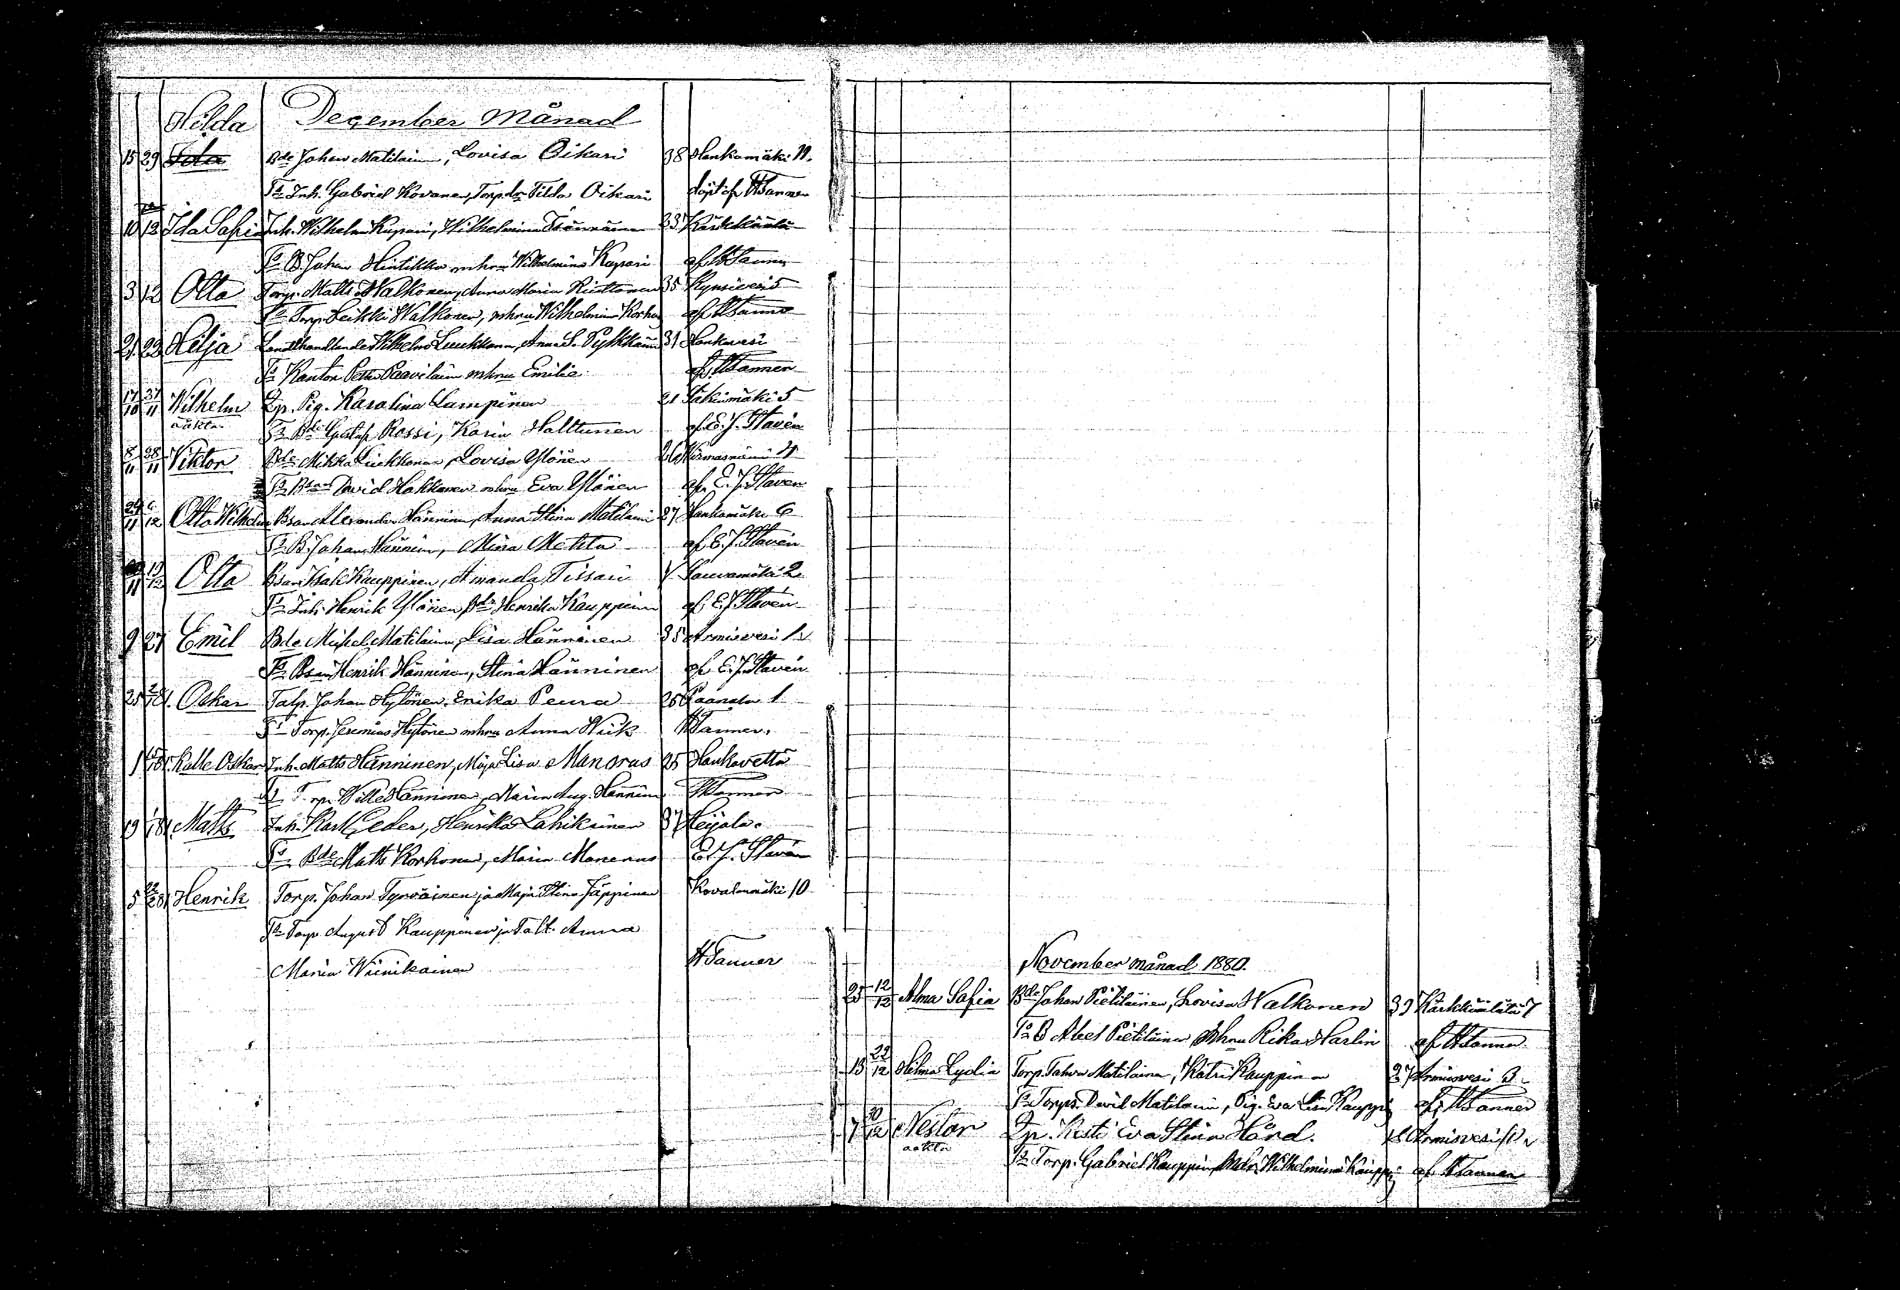 Hilda December månad
15 29 Ida Bde Johan Matilain, Lovisa Oikari 38 Hankamäki 11.
Fs Inh. Gabriel Kovanen, Torp.dr Tilda Oikari döpt af HTanner
10 12 Ida Sofia Inh. Wilhelm Kupari, Wilhelmina 33 Kärkkäälä
Fs B. Johan Hintikka m hru Wilhelmina Kupari af HTanner
3 12 Otto Torp. Matts Walkonen, Anna Maria 35 Kynsivesi 5
Fs Torp. Heikki Walkonen, m hru Wilhelmina Korho af HTanner
21 23 Hilja Landthandlande Wilhelm Leuckkanen, Anna S. Pylkkänn 31 Hankavesi
Fs Kantor Petter Paavilain m hru Emilie af HTanner
17/10 27/11 Wilhelm Lp. Pig. Karolina Lampinen 21 5
oäkta Fs Bde Gustaf Rossi, Karin Halttunen af E. J. Stavén
8/11 28/11 Viktor Bde Mikko Liukkonen, Lovisa Ylönen 26 4
Fs Bson David Hakkanen m hru Eva Ylönen af E. J. Stavén
24/11 6/12 Otto Wilhelm Bson Alexander Hänninen, Anna Stina Matilain 27 Hankamäki 6
Fs B. Johan Hänninen, Mina af E. J. Stavén
11 19/12 Otto Bson Isak Kauppinen, Amanda Tissari Sauvamäki 2
Fs Inh. Henrik Ylönen, Bdr Henrika Kauppinen af E. J. Stavén
9 27 Emil Bde Michel Matilainn, Lisa Hänninen 35 Armisvesi 1.
Fs Bson Henrik Hänninen, Stina Hänninen af E. J. Stavén
25 81. Oskar Talp. Johan Hytönen, Erika Peura 26 Paanala 1
Fs Torp. Jeremias Hytönen m hru Anna Wiik HTanner.
1 81. Kalle Oskar Inh. Matts Hänninen, Maja Lisa Manerus 25 Hankavetta
Fs Torp. Wille Hänninen, Maria Aug. Hännin HTanner
19 81. Matts Inh. Karl Geder, Henrika Lahikainen 37 Keijala.
Fs Bde Matts Korhonen, Maria Manerus E. J. Stavén
5 Henrik Torp. Johan Tyrväinen ja Maja Stina Jäppinen Kovalanmäki 10
Fs Torp August Kauppinen ja Talt. Anna
Maria Wiinikainen HTanner
November månad 1880.
25 12/12 Alma Sofia Bde Johan Pietiläinen, Lovisa Walkonen 39 7
Fs B Abel Pietiläinen m hru Rika Harlin af HTanner
13 22/12 Hilma Lydia Torp. Matilainen, Katri Kauppinen 27 Armisvesi 3.
Fs Torps. David Matilain, Pig. Eva Lisa Kauppi af HTanner
7 30/12 Nestor Lp. Eva Stina Hård. Armisvesi
oäkta Fs Torp. Gabriel Kauppin, Wilhelmina Kauppi af HTanner